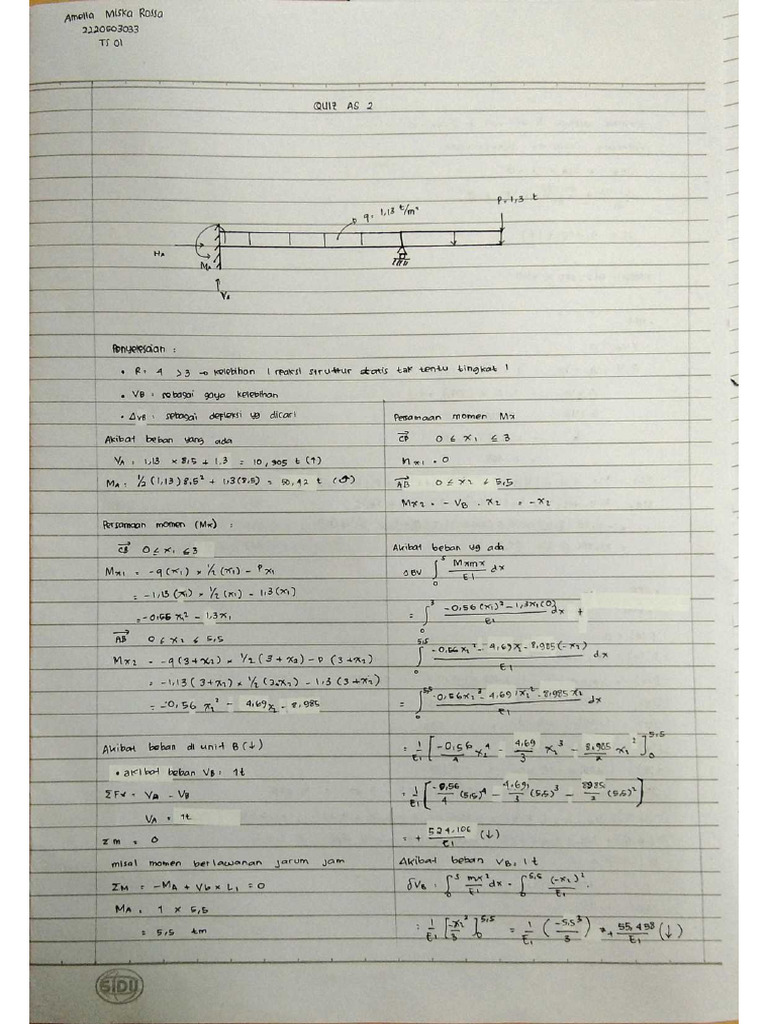 Amelia Miska Rossa
2220603033
TS 01
QUIZ AS 2
P = 1,3 t
q = 1,13 t/m'
HA
MA
VA
Penyelesaian :
• R = 4 > 3 → kelebihan 1 reaksi struktur statis tak tentu tingkat 1
• VB : sebagai gaya kelebihan
• ΔVB : sebagai defleksi yg dicari
Akibat beban yang ada
VA = 1,13 × 8,5 + 1,3 = 10,905 t (↑)
MA = 1/2 (1,13) 8,5² + 1,3 (8,5) = 50,42 t (↺)
Persamaan momen (Mx) :
CB 0 ≤ x1 ≤ 3
Mx1 = -q (x1) × 1/2 (x1) - P x1
= -1,13 (x1) × 1/2 (x1) - 1,3 (x1)
= -0,56 x1² - 1,3x1
AB 0 ≤ x2 ≤ 5,5
Mx2 = -q (3+x2) × 1/2 (3+x2) - P (3+x2)
= -1,13 (3+x2) × 1/2 (3+x2) - 1,3 (3+x2)
= -0,56 x2² - 4,69x2 - 8,985
Akibat beban di unit B (↓)
• akibat beban VB = 1t
ΣFv = VA - VB
VA = 1t
Σm = 0
misal momen berlawanan jarum jam
ΣM = -MA + Vb × L1 = 0
MA = 1 × 5,5
= 5,5 tm
Persamaan momen Mx
CB 0 ≤ x1 ≤ 3
mx1 = 0
AB 0 ≤ x2 ≤ 5,5
Mx2 = - VB . x2 = -x2
Akibat beban yg ada
ΔBV ∫₀ˢ Mxmx/EI dx
= ∫₀³ -0,56 (x1)² - 1,3x1 (0)/EI dx +
∫₀^5,5 -0,56x² - 4,69x - 8,985 (-x2)/EI dx
= ∫₀^5,5 -0,56x2³ - 4,69x2² - 8,985x2/EI dx
= 1/EI [-0,56/4 x2⁴ - 4,69/3 x2³ - 8,985/2 x2²]₀^5,5
= 1/EI [-0,56/4 (5,5)⁴ - 4,69/3 (5,5)³ - 8985/2 (5,5)²]
= + 524,106/EI (↓)
Akibat beban VB = 1 t
δVB = ∫₀ˢ mx²/EI dx = ∫₀^5,5 (-x2)²/EI
= 1/EI [-x2³/3]₀^5,5 = 1/EI (-5,5³/3) = + 55,458/EI (↓)
SIDU